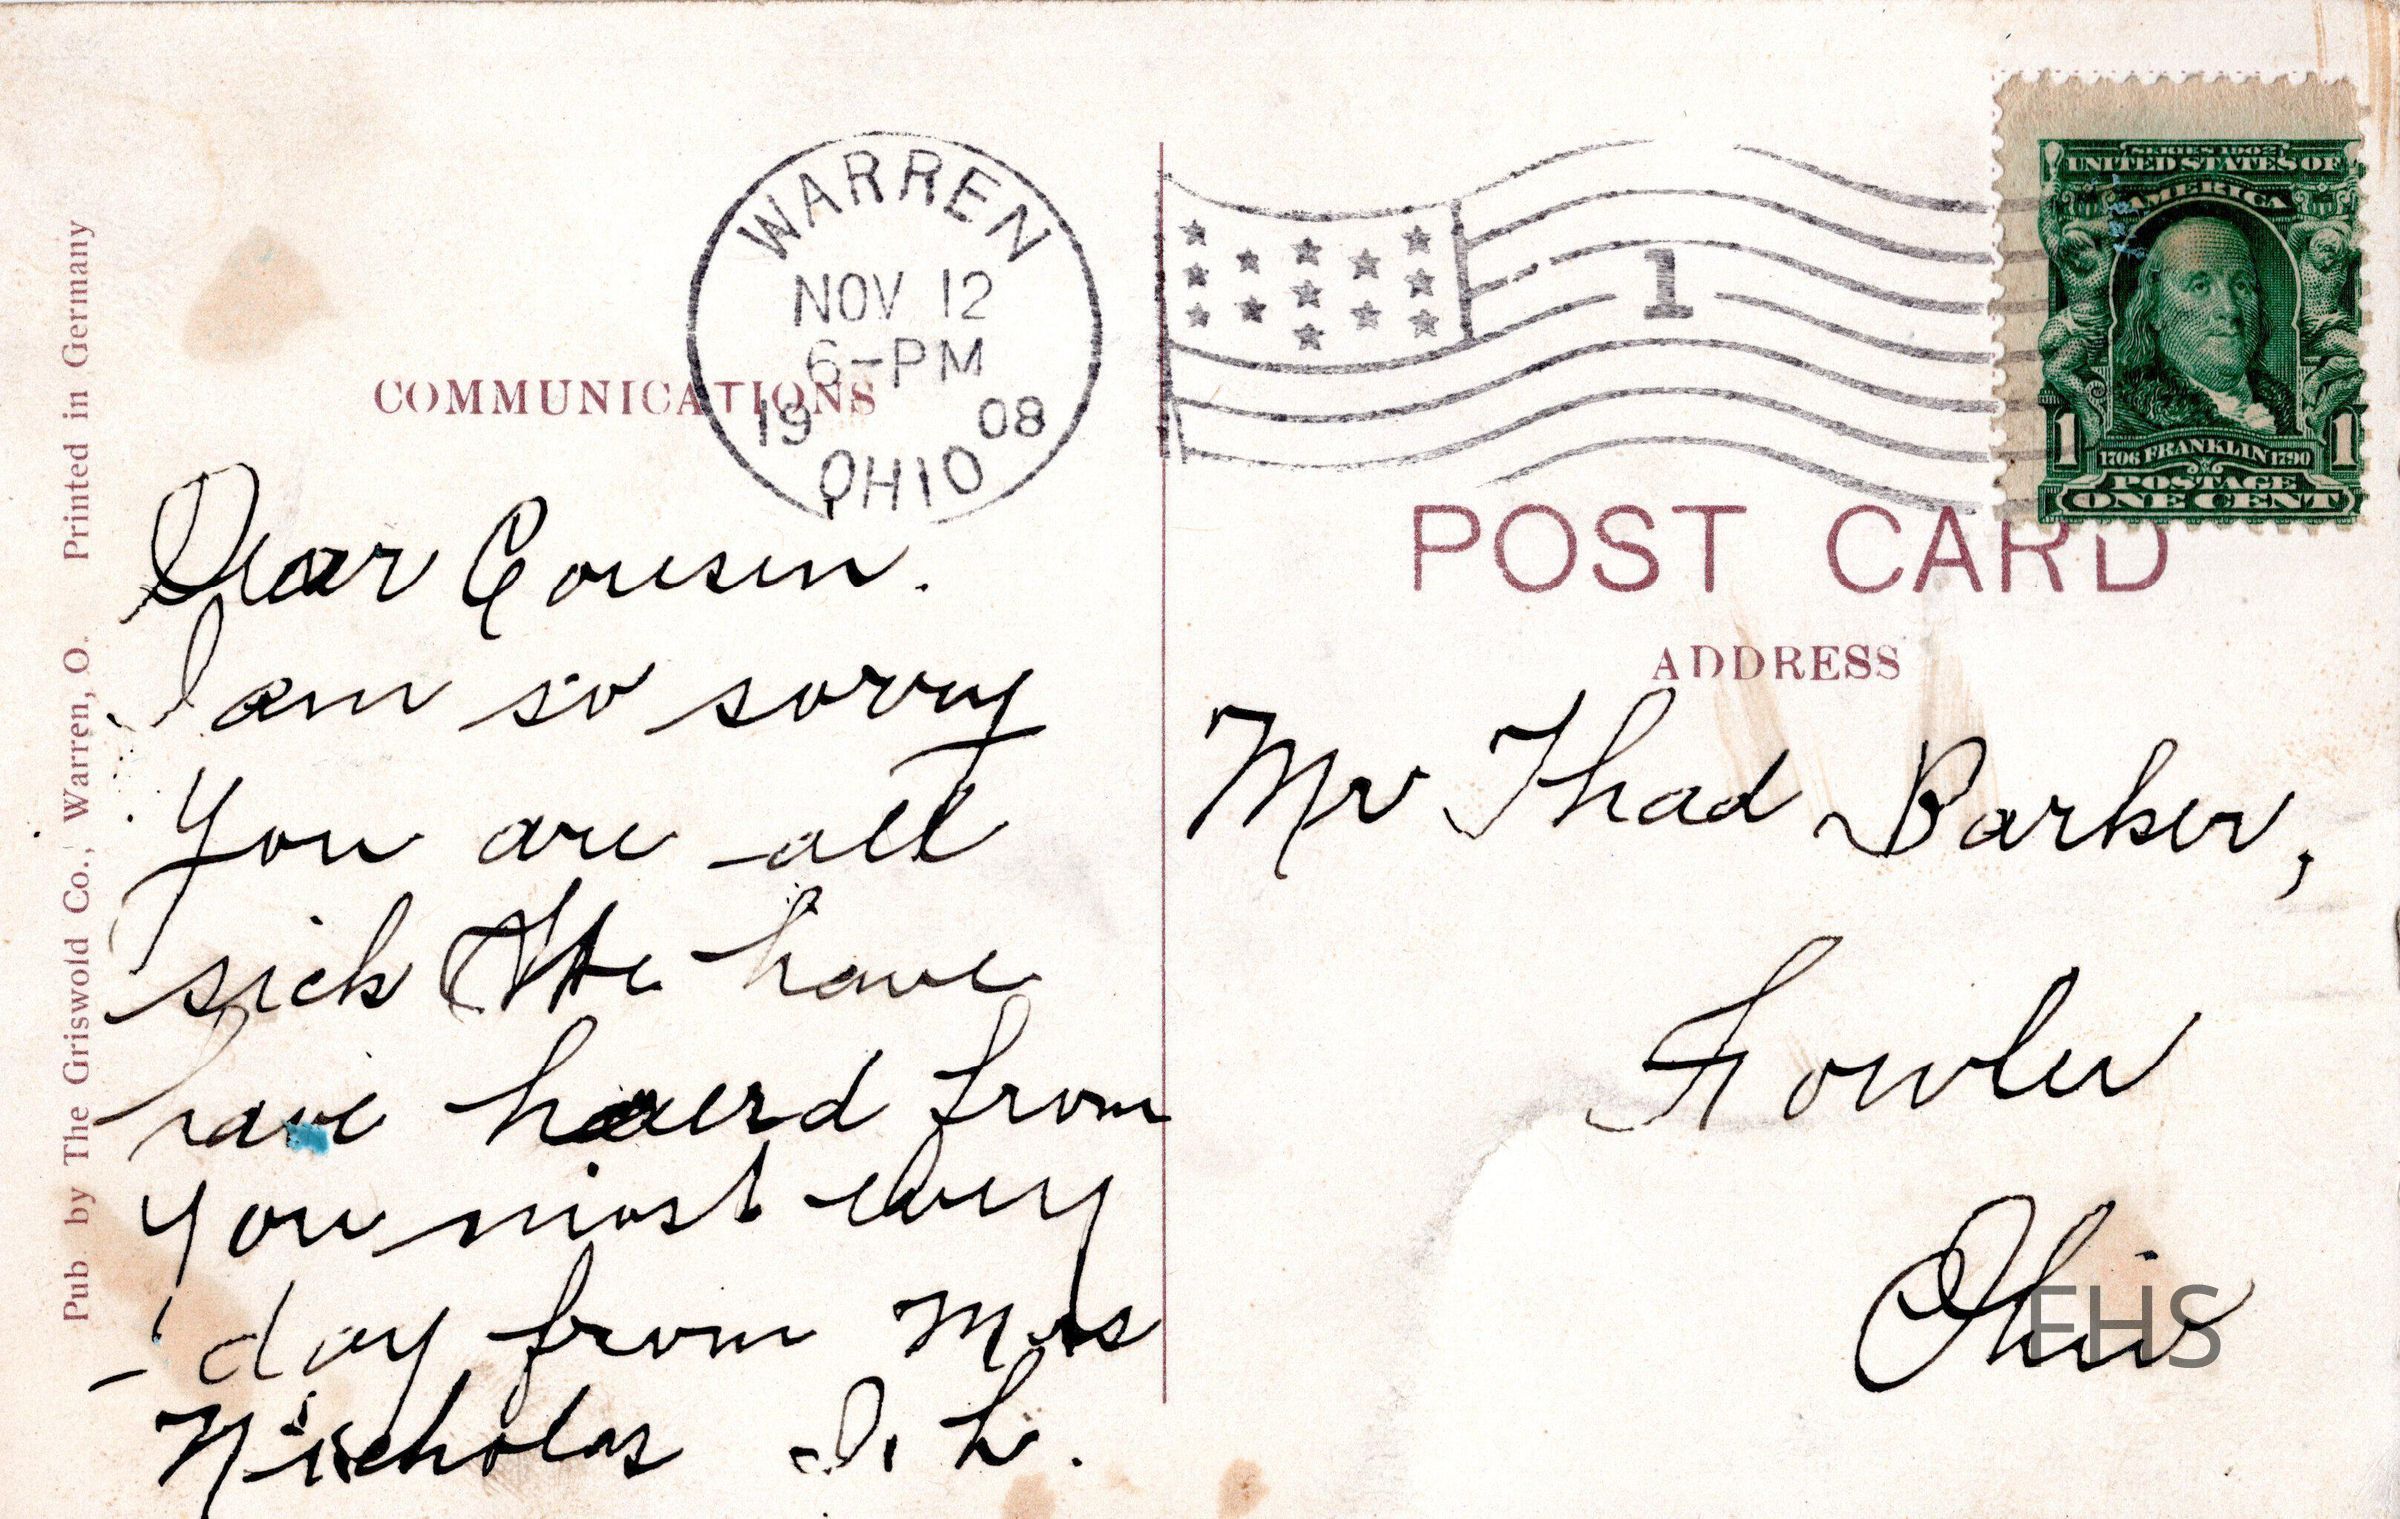 WARREN
NOV 12
6-PM
19 08
OHIO
1
SERIES 1902
UNITED STATES OF
AMERICA
1 1706 FRANKLIN 1790 1
POSTAGE
ONE CENT
COMMUNICATIONS
Dear Cousin.
I am so sorry
you are all
sick We have
have haerd from
you most every
day from Mrs
Nicholas I. L.
POST CARD
ADDRESS
Mr Thad Barker,
Fowler
Ohio
EHS
Pub by The Griswold Co., Warren, O. Printed in Germany